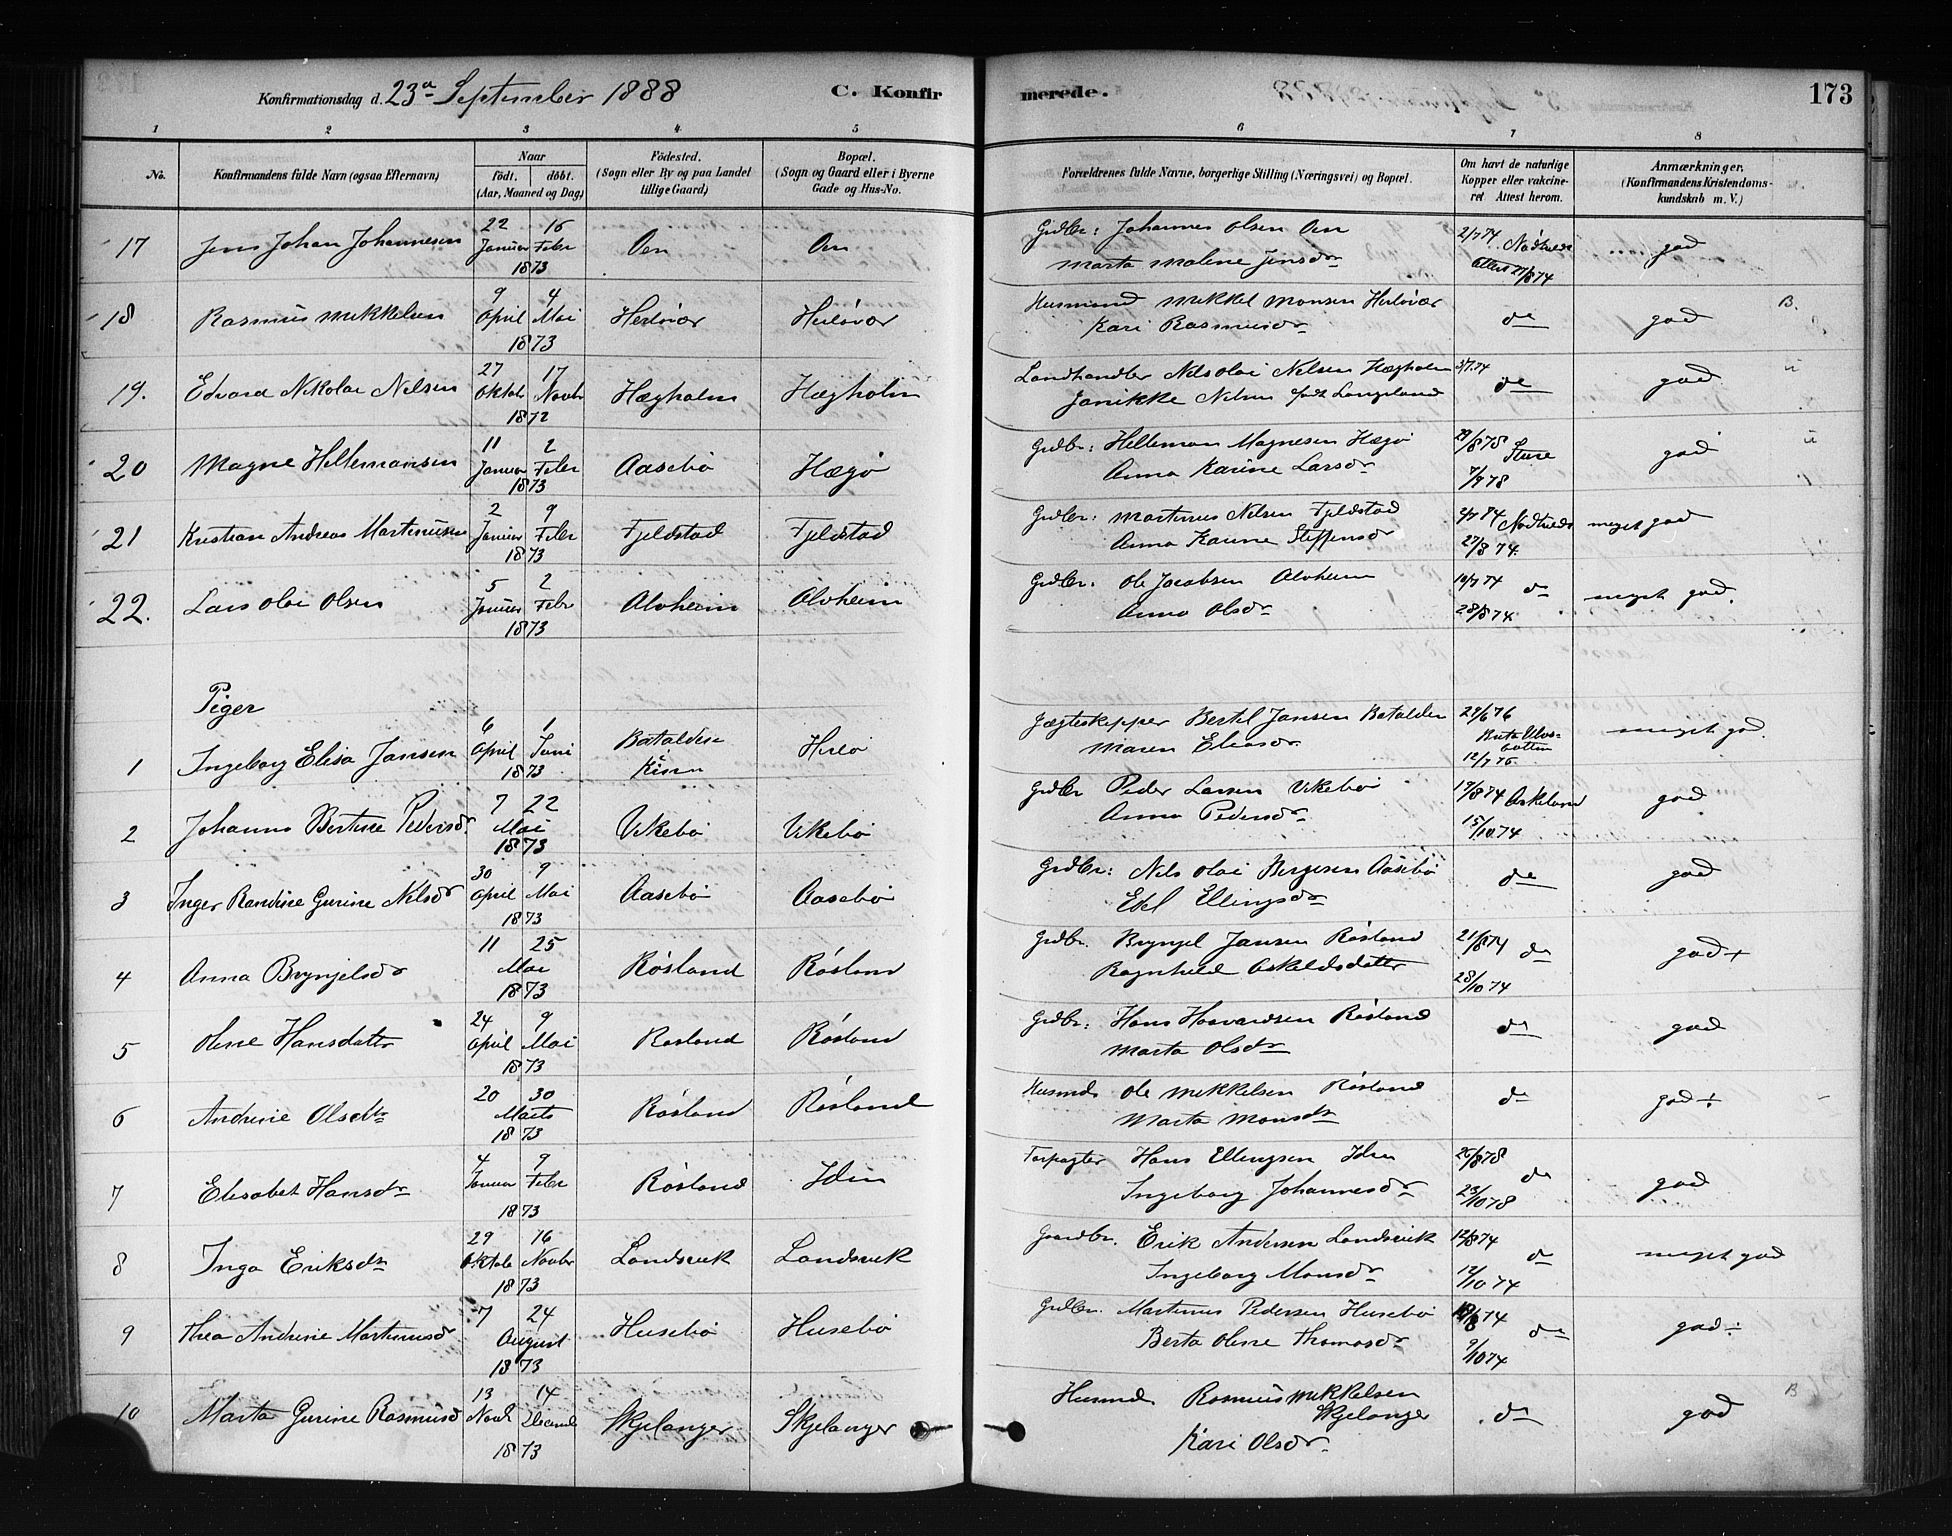 Konfirmationsdag d. 23a September 1888 C. Konfirmerede. 173
1 2 3 4 5 6 7 8
No. Konfirmandens fulde Navn (ogsaa Efternavn) Naar födt. döbt. (Aar, Maaned og Dag) Födested. (Sogn eller By og paa Landet tillige Gaard) Bopæl. (Sogn og Gaard eller i Byerne Gade og Hus-No. Forældrenes fulde Navne, borgerlige Stilling (Næringsvei) og Bopæl. Om havt de naturlige Kopper eller vakcineret Attest herom. Anmærkninger. (Konfirmandens Kristendomskundskab m. V.)
17 Jens Johan Johannesen 22 Januar 16 Febr 1873 Oen Oen Grdbr: Johannes Olsen Oen
Marta Malene Jensdr 2/7 74 Nødtvedt attest 27/8 74 god
18 Rasmus Mikkelsen 9 April 4 Mai 1873 Herløvær Herløvær Husmand Mikkel Monsen Herløvær
Kari Rasmusdr do god B.
19. Edvard Nikolai Nilsen 27 Oktob 17 Novbr 1872 Hægholm Hægholm Landhandler Nils Olai Nilsen Hægholm
Janikke Nilsen født Langeland 3/7 74 do god
20 Magne Hellemansen 11 Januar 2 Febr 1873 Aasebø Hægø Grdbr: Helleman Magnesen Hægø
Anna Karine Larsdr 29/8 78 Sture 7/9 78 god
21 Kristian Andreas Martinusen 2 Januar 9 Febr 1873 Fjeldstad Fjeldstad Grdbr: Martinus Nilsen Fjeldstad
Anna Karine Steffensdr Nødtvedt 27/8 74. meget god
22. Lars Olai Olsen 5 Januar 2 Febr 1873 Alvheim Alvheim Grdbr: Ole Jacobsen Alvheim
Anna Olsdr 10/7 74 do 28/8 74 meget god.
Piger
1 Ingeborg Elisa Jansen 6 April 1 Juni 1873 Batalden Kinn Herlø Jægteskipper Bertil Jansen Batalden
Maren Eliasdr 29/6 76 12/7 76 meget god.
2 Johanna Bertine Pedersdr 7 22 Mai 1873 Vikebø Vikebø Grdbr Peder Larsen Vikebø
Anna Pedersdr 19/8 74 Askeland 15/10 74 god
3 Inger Randine Gurine Nilsdr 30 April 9 Mai 1873 Aasebø Aasebø Grdbr: Nils Olai Børgesen Aasebø
Edel Ellingsdr do god
4 Anna Brynjelsdr 11 25 Mai 1873 Røsland Røsland Grdbr. Brynjel Jansen Røsland
Ragnhild Askeldsdatter 21/8 74 do 28/10 74 god+
5 Oline Hansdatter 24 April 9 Mai 1873 Røsland Røsland Grdbr: Hans Haavardsen Røsland
Marta Olsdr do god
6 Andrine Olsdtr 20 30 Marts 1873 Røsland Røsland Husmd. Ole Mikkelsen Røsland
Marta Monsdtr do god÷
7 Elisabet Hansdr 4 Januar 9 Febr 1873 Røsland Iden Forpagter Hans Ellingsen Iden
Ingeborg Johannesdr 26/8 78 do 23/10 78 god
8 Inga Eriksdr 29 Oktob 16 Novbr 1873 Landsvik Landsvik Gaardbr. Erik Andersen Landsvik
Ingeborg Monsdr 12/8 74 do 12/10 74 meget god
9 Thea Andrine Martinusdr 7 24 August 1873 Husebø Husebø Grdbr. Martinus Pedersen Husebø
Berta Oline Thomasdr 18/8 74 do 9/10 74 god÷
10 Marta Gurine Rasmusd 13 Novbr 14 Decemb 1873 Skjelanger Skjelanger Husmd. Rasmus Mikkelsen Skjelanger
Kari Olsdr. do god B